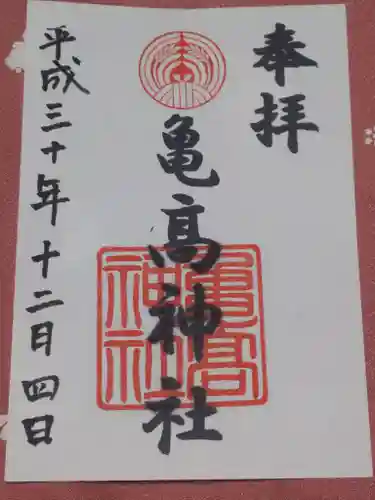 奉拝
亀高神社
亀高
神社
平成三十年十二月四日